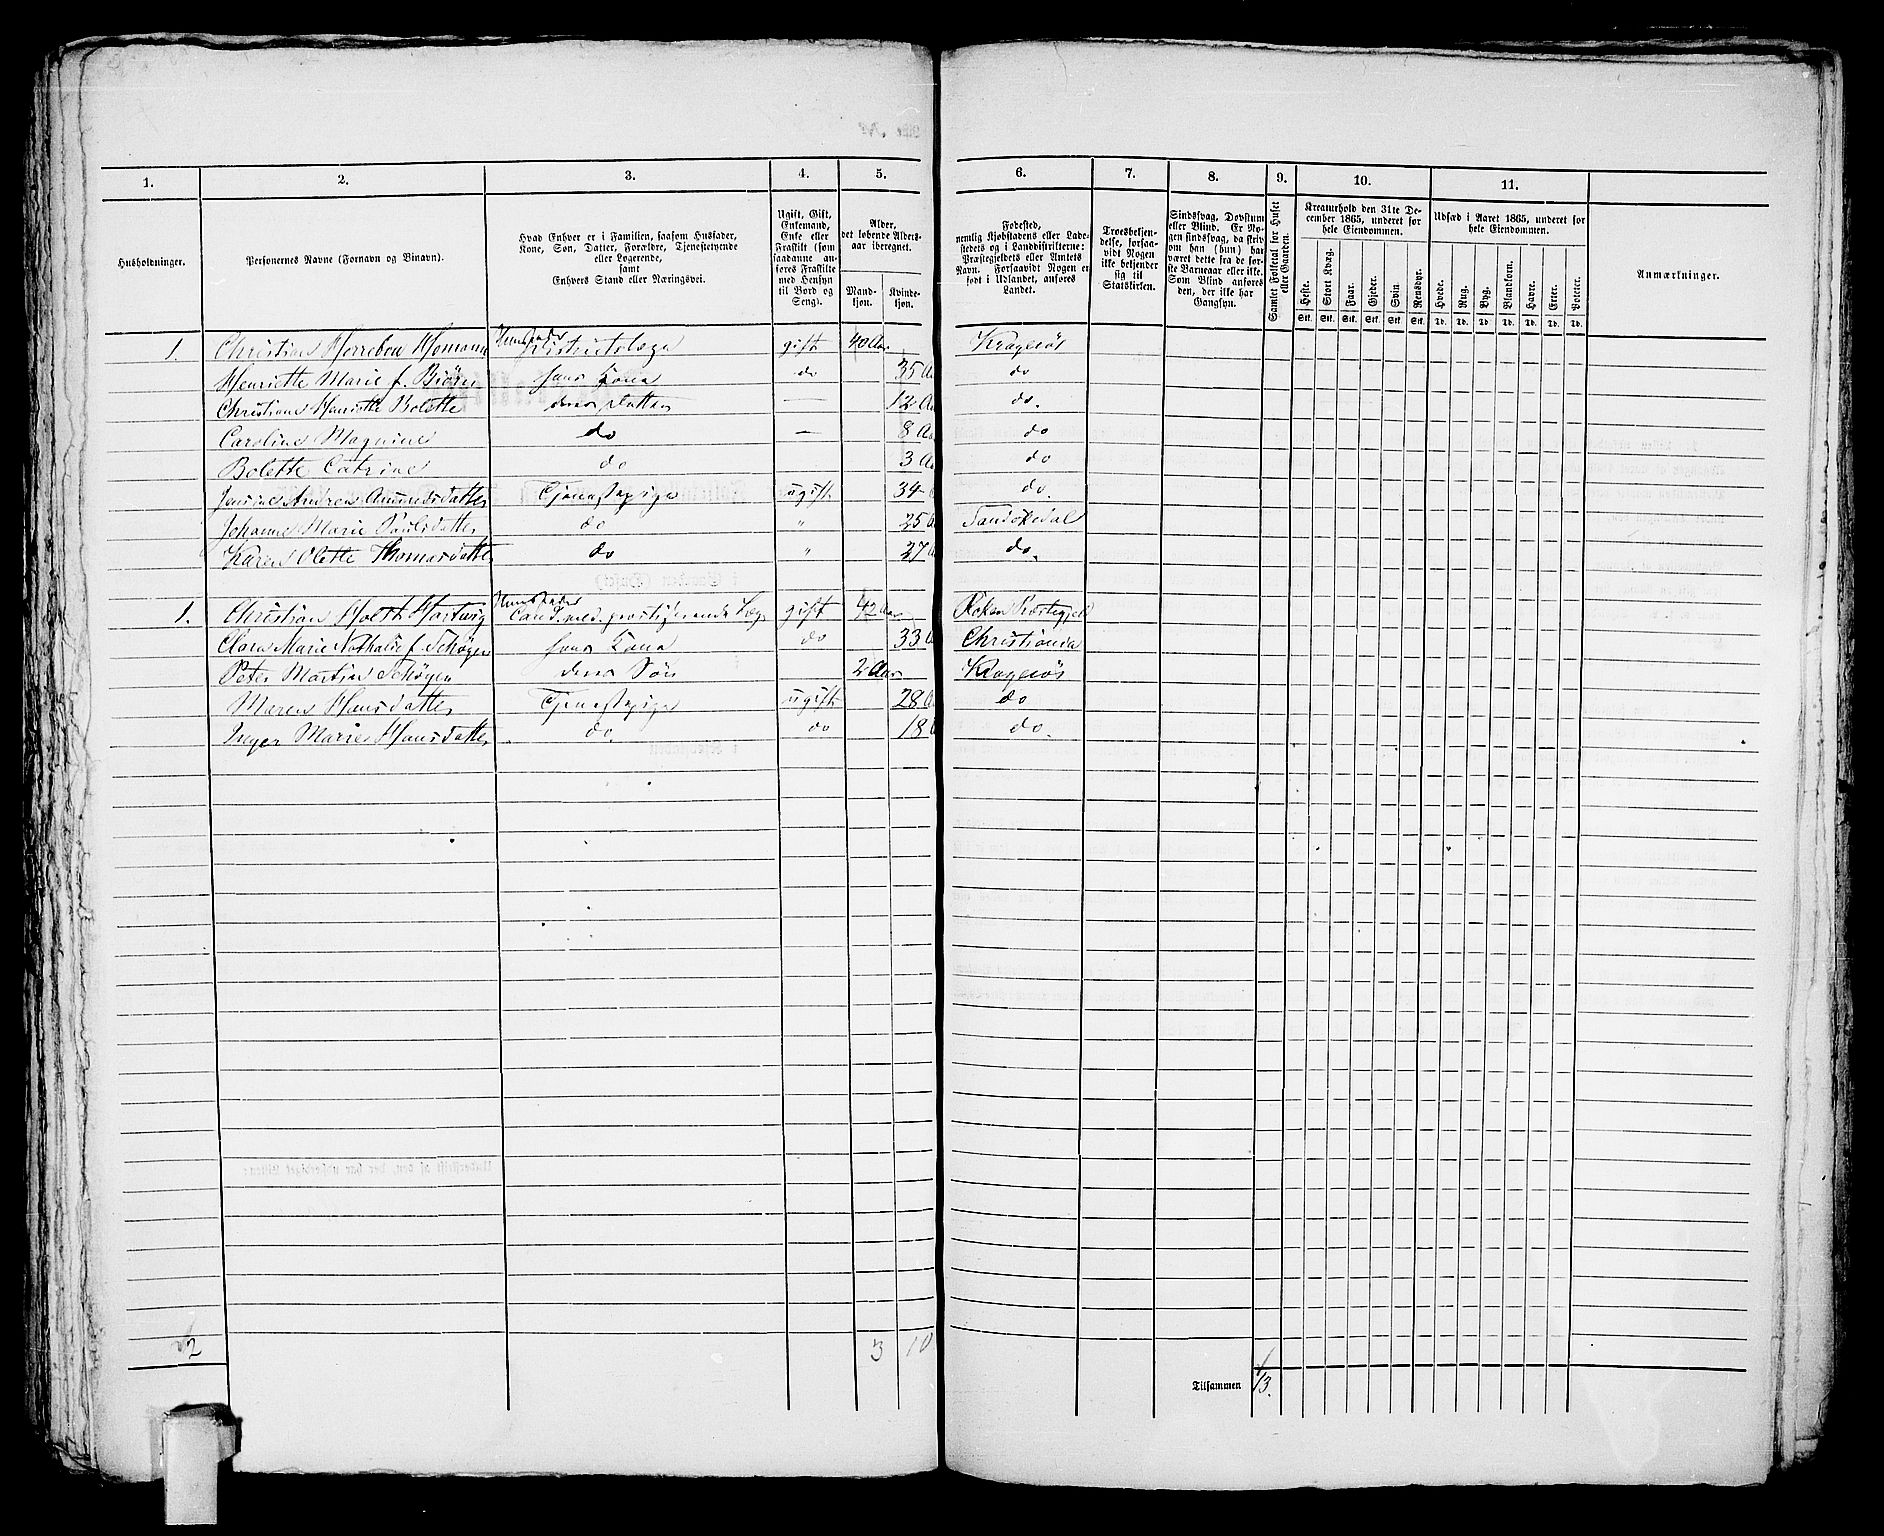 1. 2. 3. 4. 5. 6. 7. 8. 9. 10. 11.
Husholdninger.
Personernes Navne (Fornavn og Binavn).
Hvad Enhver er i Familien, saasom Husfader,
Kone, Søn, Datter, Forældre, Tjenestetyende
eller Logerende,
samt
Enhvers Stand eller Næringsvei.
Ugift, Gift,
Enkemand,
Enke eller
Fraskilt (som
saadanne an-
føres Fraskilte
med Hensyn
til Bord og
Seng).
Alder,
det løbende Alders-
aar iberegnet.
Mand-
kjøn.
Kvinde-
kjøn.
Fødested,
nemlig Kjøbstadens eller Lade-
stedets og i Landdistrikterne:
Præstegjeldets eller Amtets
Navn. Forsaavidt Nogen er
født i Udlandet, anføres
Landet.
Troesbekjen-
delse, forsaa-
vidt Nogen
ikke bekjender
sig til
Statskirken.
Sindssvag, Døvstum
eller Blind. Er No-
gen sindssvag, da skriv
om han (hun) har
været dette fra de før-
ste Barneaar eller ikke.
Som Blind anføres
den, der ikke har
Gangsyn.
Samlet Folketal for Huset
eller Gaarden.
Kreaturhold den 31te De-
cember 1865, underet for
hele Eiendommen.
Heste. Stort Kvæg. Faar. Gjeder. Svin. Rensdyr.
Stk. Stk. Stk. Stk. Stk. Stk.
Udsæd i Aaret 1865, underet for
hele Eiendommen.
Hvede. Rug. Byg. Blandkorn. Havre. Erter. Poteter.
Td. Td. Td. Td. Td. Td. Td.
Anmærkninger.
1. Christian Horrebow Homann Huusfader Districtslæge gift 40 Aar Kragerøe
Henriette Marie f. Biørn hans Kone do 35 A do
Christiane Henriette Bolette deres Datter — 12 Aa do.
Caroline Magnine do — 8 Aa do
Bolette Catrine do 3 A do
Jensine Andrea Amundsdatter Tjenestepige ugift 34 do
Johanne Marie Poulsdatter do " 25 A Sandøkedal
Karen Olette Thomasdatter do " 27 A do.
1. Christian Holst Hartwig Huusfader Cand. med. practiserende Læge gift 42 Aar Røken Præstegjeld
Clara Marie Nathalie f. Schøyen hans Kone do 33 A Christiania
Peter Martin Schøyen deres Søn 2 Aar Kragerøe
Maren Hansdatter Tjenestepige ugift 28 A do
Inger Marie Hansdatter do. do 18 A do.
2 3 10
Tilsammen 13.